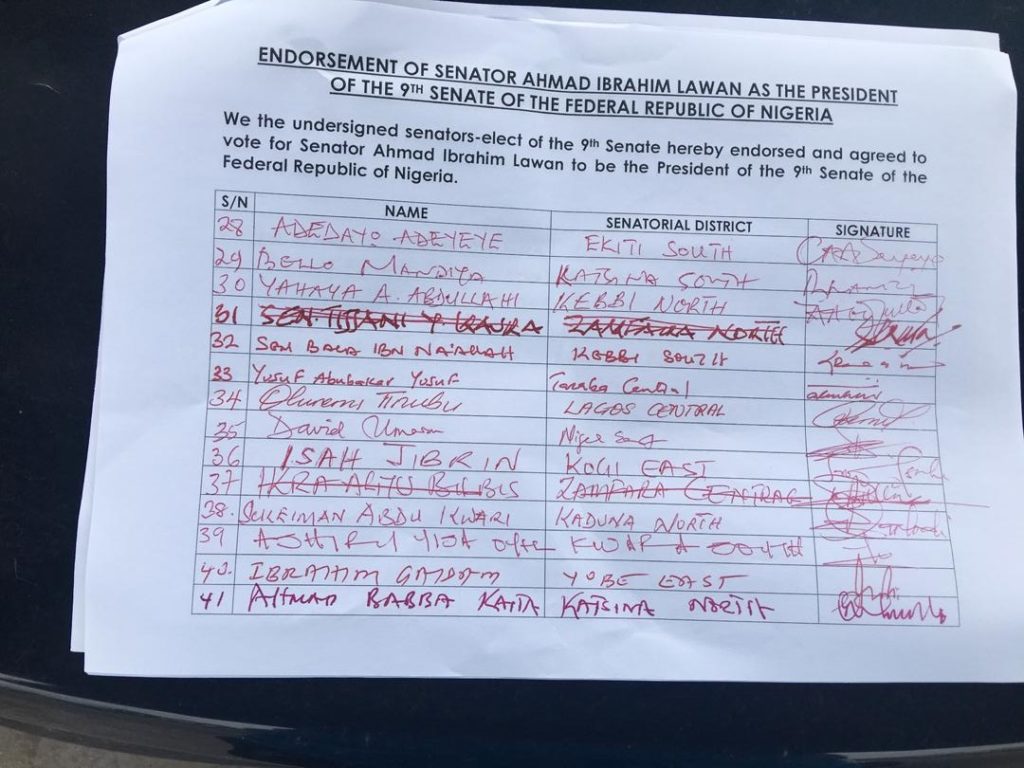 ENDORSEMENT OF SENATOR AHMAD IBRAHIM LAWAN AS THE PRESIDENT
OF THE 9TH SENATE OF THE FEDERAL REPUBLIC OF NIGERIA
We the undersigned senators-elect of the 9th Senate hereby endorsed and agreed to
vote for Senator Ahmad Ibrahim Lawan to be the President of the 9th Senate of the
Federal Republic of Nigeria.
S/N NAME SENATORIAL DISTRICT SIGNATURE
28 ADEDAYO ADEYEYE EKITI SOUTH
29 BELLO MANDIYA KATSINA SOUTH
30 YAHAYA A. ABDULLAHI KEBBI NORTH
31 SEN TIJJANI Y. KAURA ZAMFARA NORTH
32 SEN BALA IBN NA'ALLAH KEBBI SOUTH
33 Yusuf Abubakar Yusuf Taraba Central
34 Oluremi Tinubu LAGOS CENTRAL
35 David Umaru Niger East
36 ISAH JIBRIN KOGI EAST
37 IKRA ALIYU BILBIS ZAMFARA CENTRAL
38. SULEIMAN ABDU KWARI KADUNA NORTH
39 ASHIRU YISA KWARA SOUTH
40. IBRAHIM GAIDAM YOBE EAST
41 AHMAD BABBA KAITA KATSINA NORTH